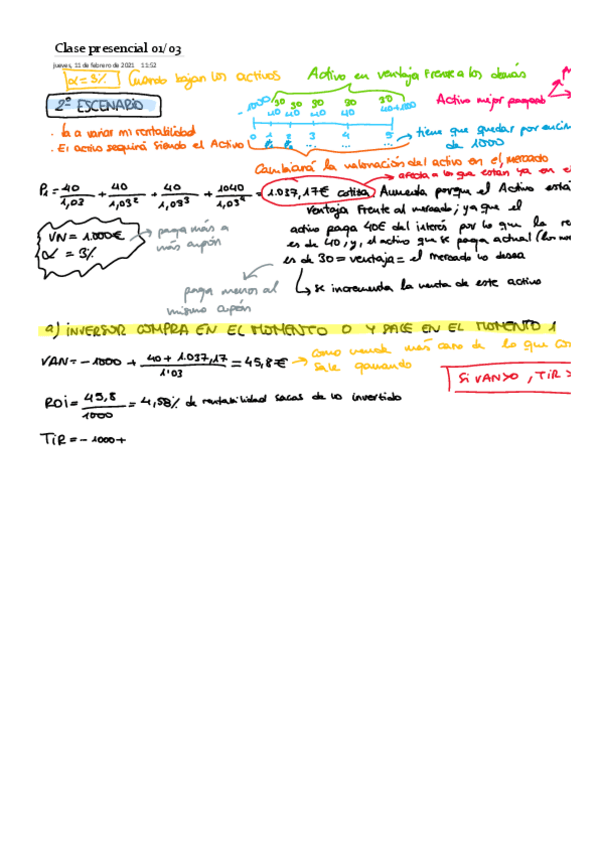 Clase presencial 01/03
jueves, 11 de febrero de 2021 11:52
α = 3% Cuando bajan los activos
Activo en ventaja frente a los demás
2º ESCENARIO
-1000 30 30 30 30 30
40 40 40 40 40+1000
0 1 2 3 4 5
P₁ P₂ ... ... ...
Activo mejor pagado
· Va a variar mi rentabilidad
· El activo seguirá siendo el Activo
tiene que quedar por encim
de 1000
Cambiará la valoración del activo en el mercado
afecta a lo que están ya en e
P₁ = 40/1,03 + 40/1,03² + 40/1,03³ + 1040/1,03⁴ = 1.037,17€ cotiza
Aumenta porque el Activo está
ventaja frente al mercado, ya que el
activo paga 40€ del interés por lo que la re
es de 40, y, el activo que se paga actual
es de 30 = ventaja = el mercado lo desea
se incrementa la venta de este activo
VN = 1.000€
α = 3%
paga más a
más cupón
paga menos al
mismo cupón
a) INVERSOR COMPRA EN EL MOMENTO 0 Y SALE EN EL MOMENTO 1
VAN = -1000 + 40 + 1.037,17/1'03 = 45,8€
como vende más caro de lo que com
sale ganando
Si VAN>0, TiR >
ROi = 45,8/1000 = 4,58% de rentabilidad sacas de lo invertido
TiR = -1000+